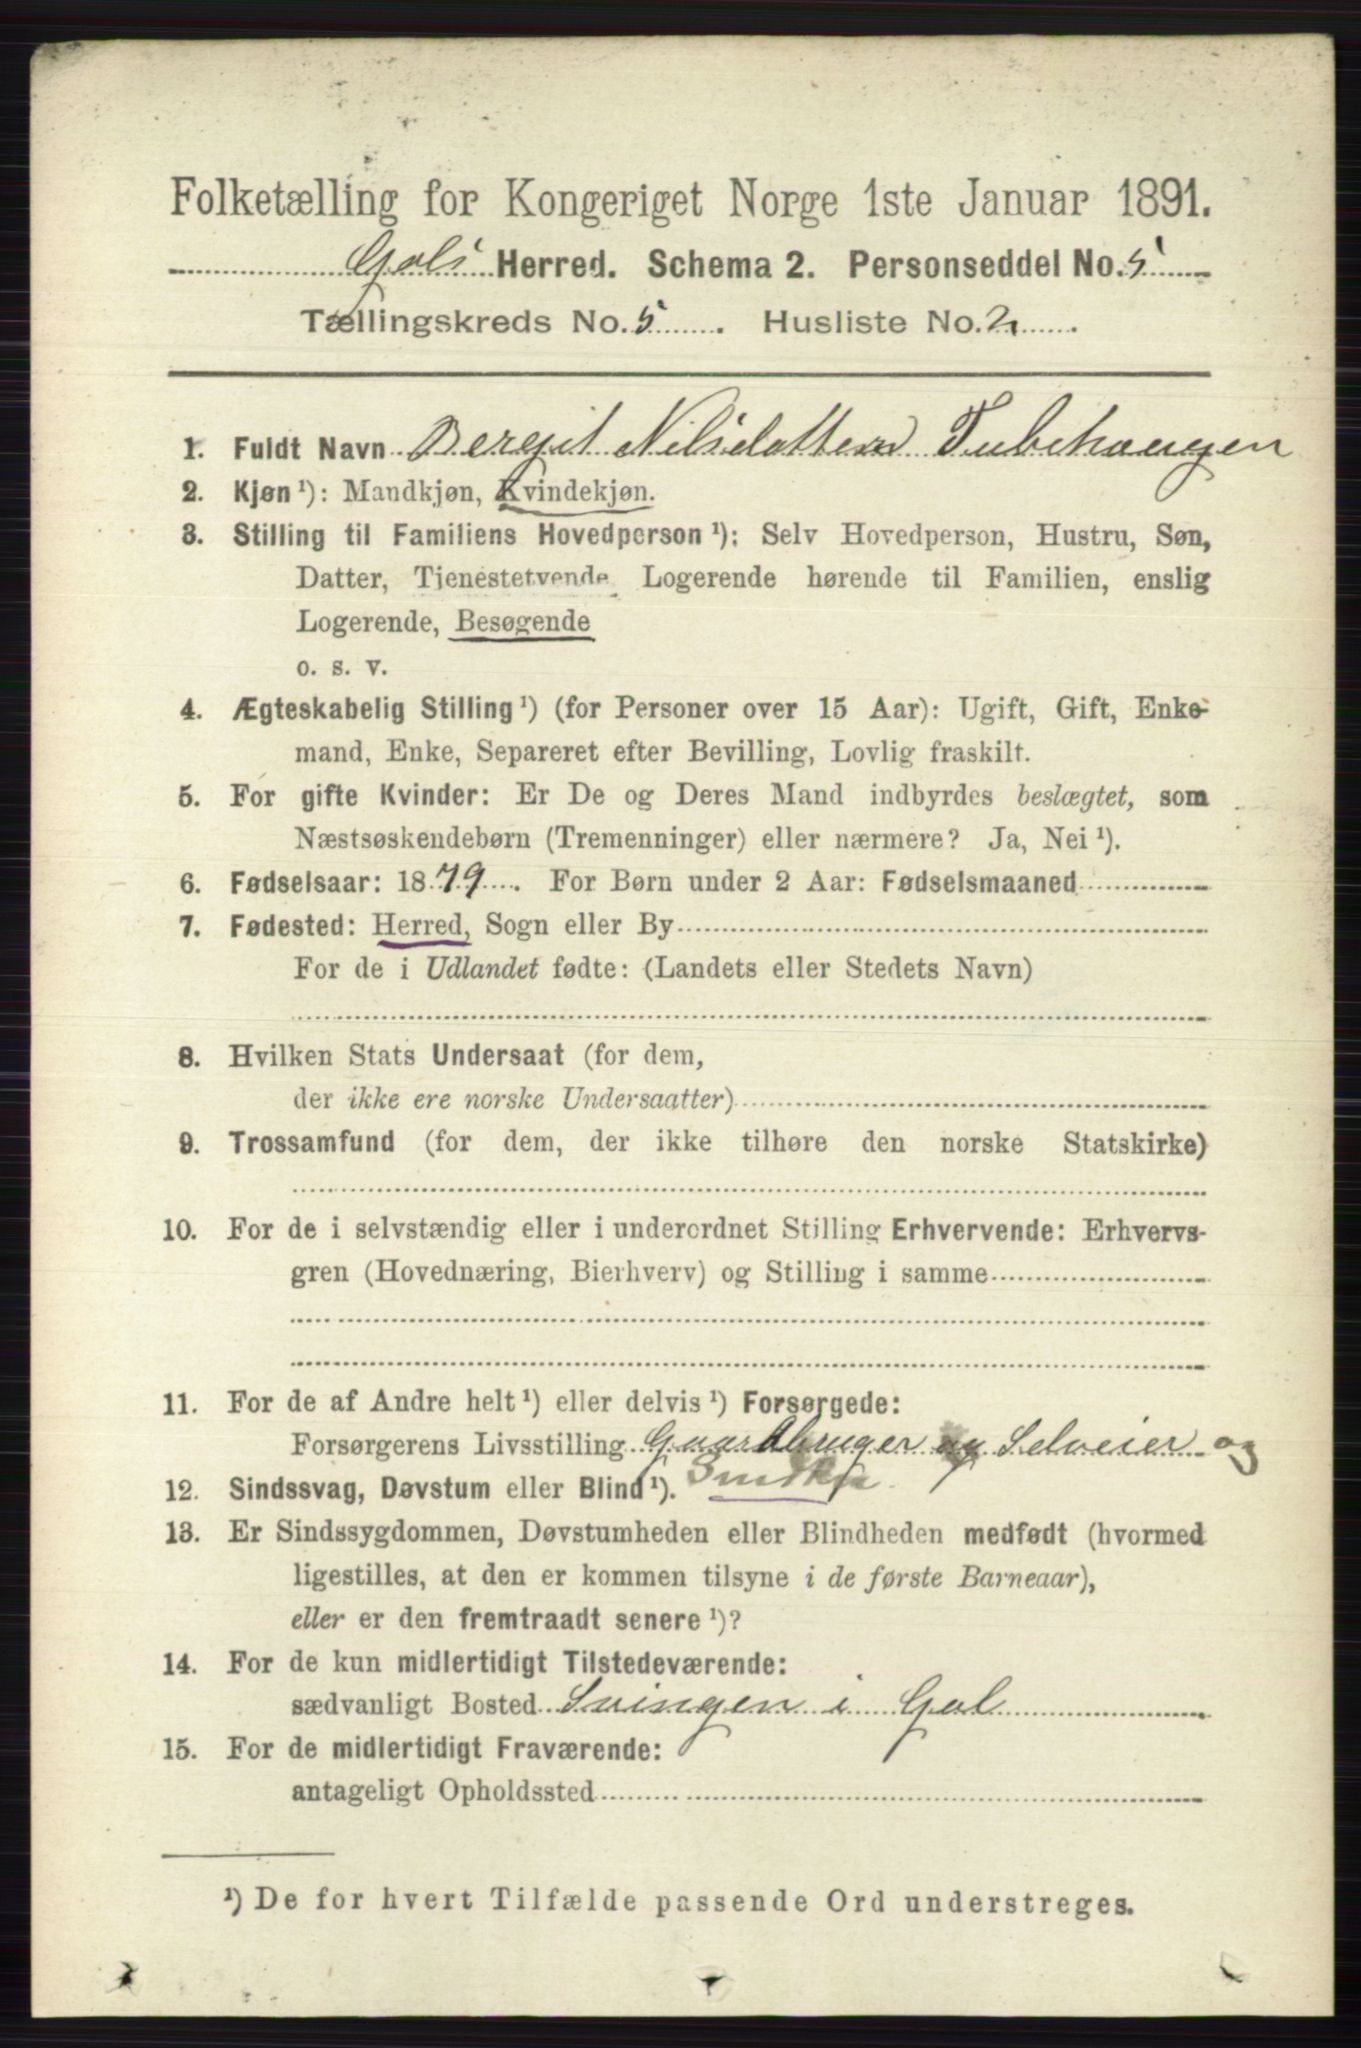 Folketælling for Kongeriget Norge 1ste Januar 1891.
Gols Herred. Schema 2. Personseddel No. 5
Tællingskreds No. 5. Husliste No. 2.
1. Fuldt Navn Bergit Nilsdatter Tubehaugen
2. Kjøn ¹): Mandkjøn, Kvindekjøn.
3. Stilling til Familiens Hovedperson ¹): Selv Hovedperson, Hustru, Søn,
Datter, Tjenestetyende, Logerende hørende til Familien, enslig
Logerende, Besøgende
o. s. v.
4. Ægteskabelig Stilling ¹) (for Personer over 15 Aar): Ugift, Gift, Enke-
mand, Enke, Separeret efter Bevilling, Lovlig fraskilt.
5. For gifte Kvinder: Er De og Deres Mand indbyrdes beslægtet, som
Næstsøskendebørn (Tremenninger) eller nærmere? Ja, Nei ¹).
6. Fødselsaar: 1879. For Børn under 2 Aar: Fødselsmaaned
7. Fødested: Herred, Sogn eller By
For de i Udlandet fødte: (Landets eller Stedets Navn)
8. Hvilken Stats Undersaat (for dem,
der ikke ere norske Undersaatter)
9. Trossamfund (for dem, der ikke tilhøre den norske Statskirke)
10. For de i selvstændig eller i underordnet Stilling Erhvervende: Erhvervs-
gren (Hovednæring, Bierhverv) og Stilling i samme
11. For de af Andre helt ¹) eller delvis ¹) Forsørgede:
Forsørgerens Livsstilling Gaardbruger og Selveier og
12. Sindssvag, Døvstum eller Blind ¹).
13. Er Sindssygdommen, Døvstumheden eller Blindheden medfødt (hvormed
ligestilles, at den er kommen tilsyne i de første Barneaar),
eller er den fremtraadt senere ¹)?
14. For de kun midlertidigt Tilstedeværende:
sædvanligt Bosted Svingen i Gol
15. For de midlertidigt Fraværende:
antageligt Opholdssted
¹) De for hvert Tilfælde passende Ord understreges.